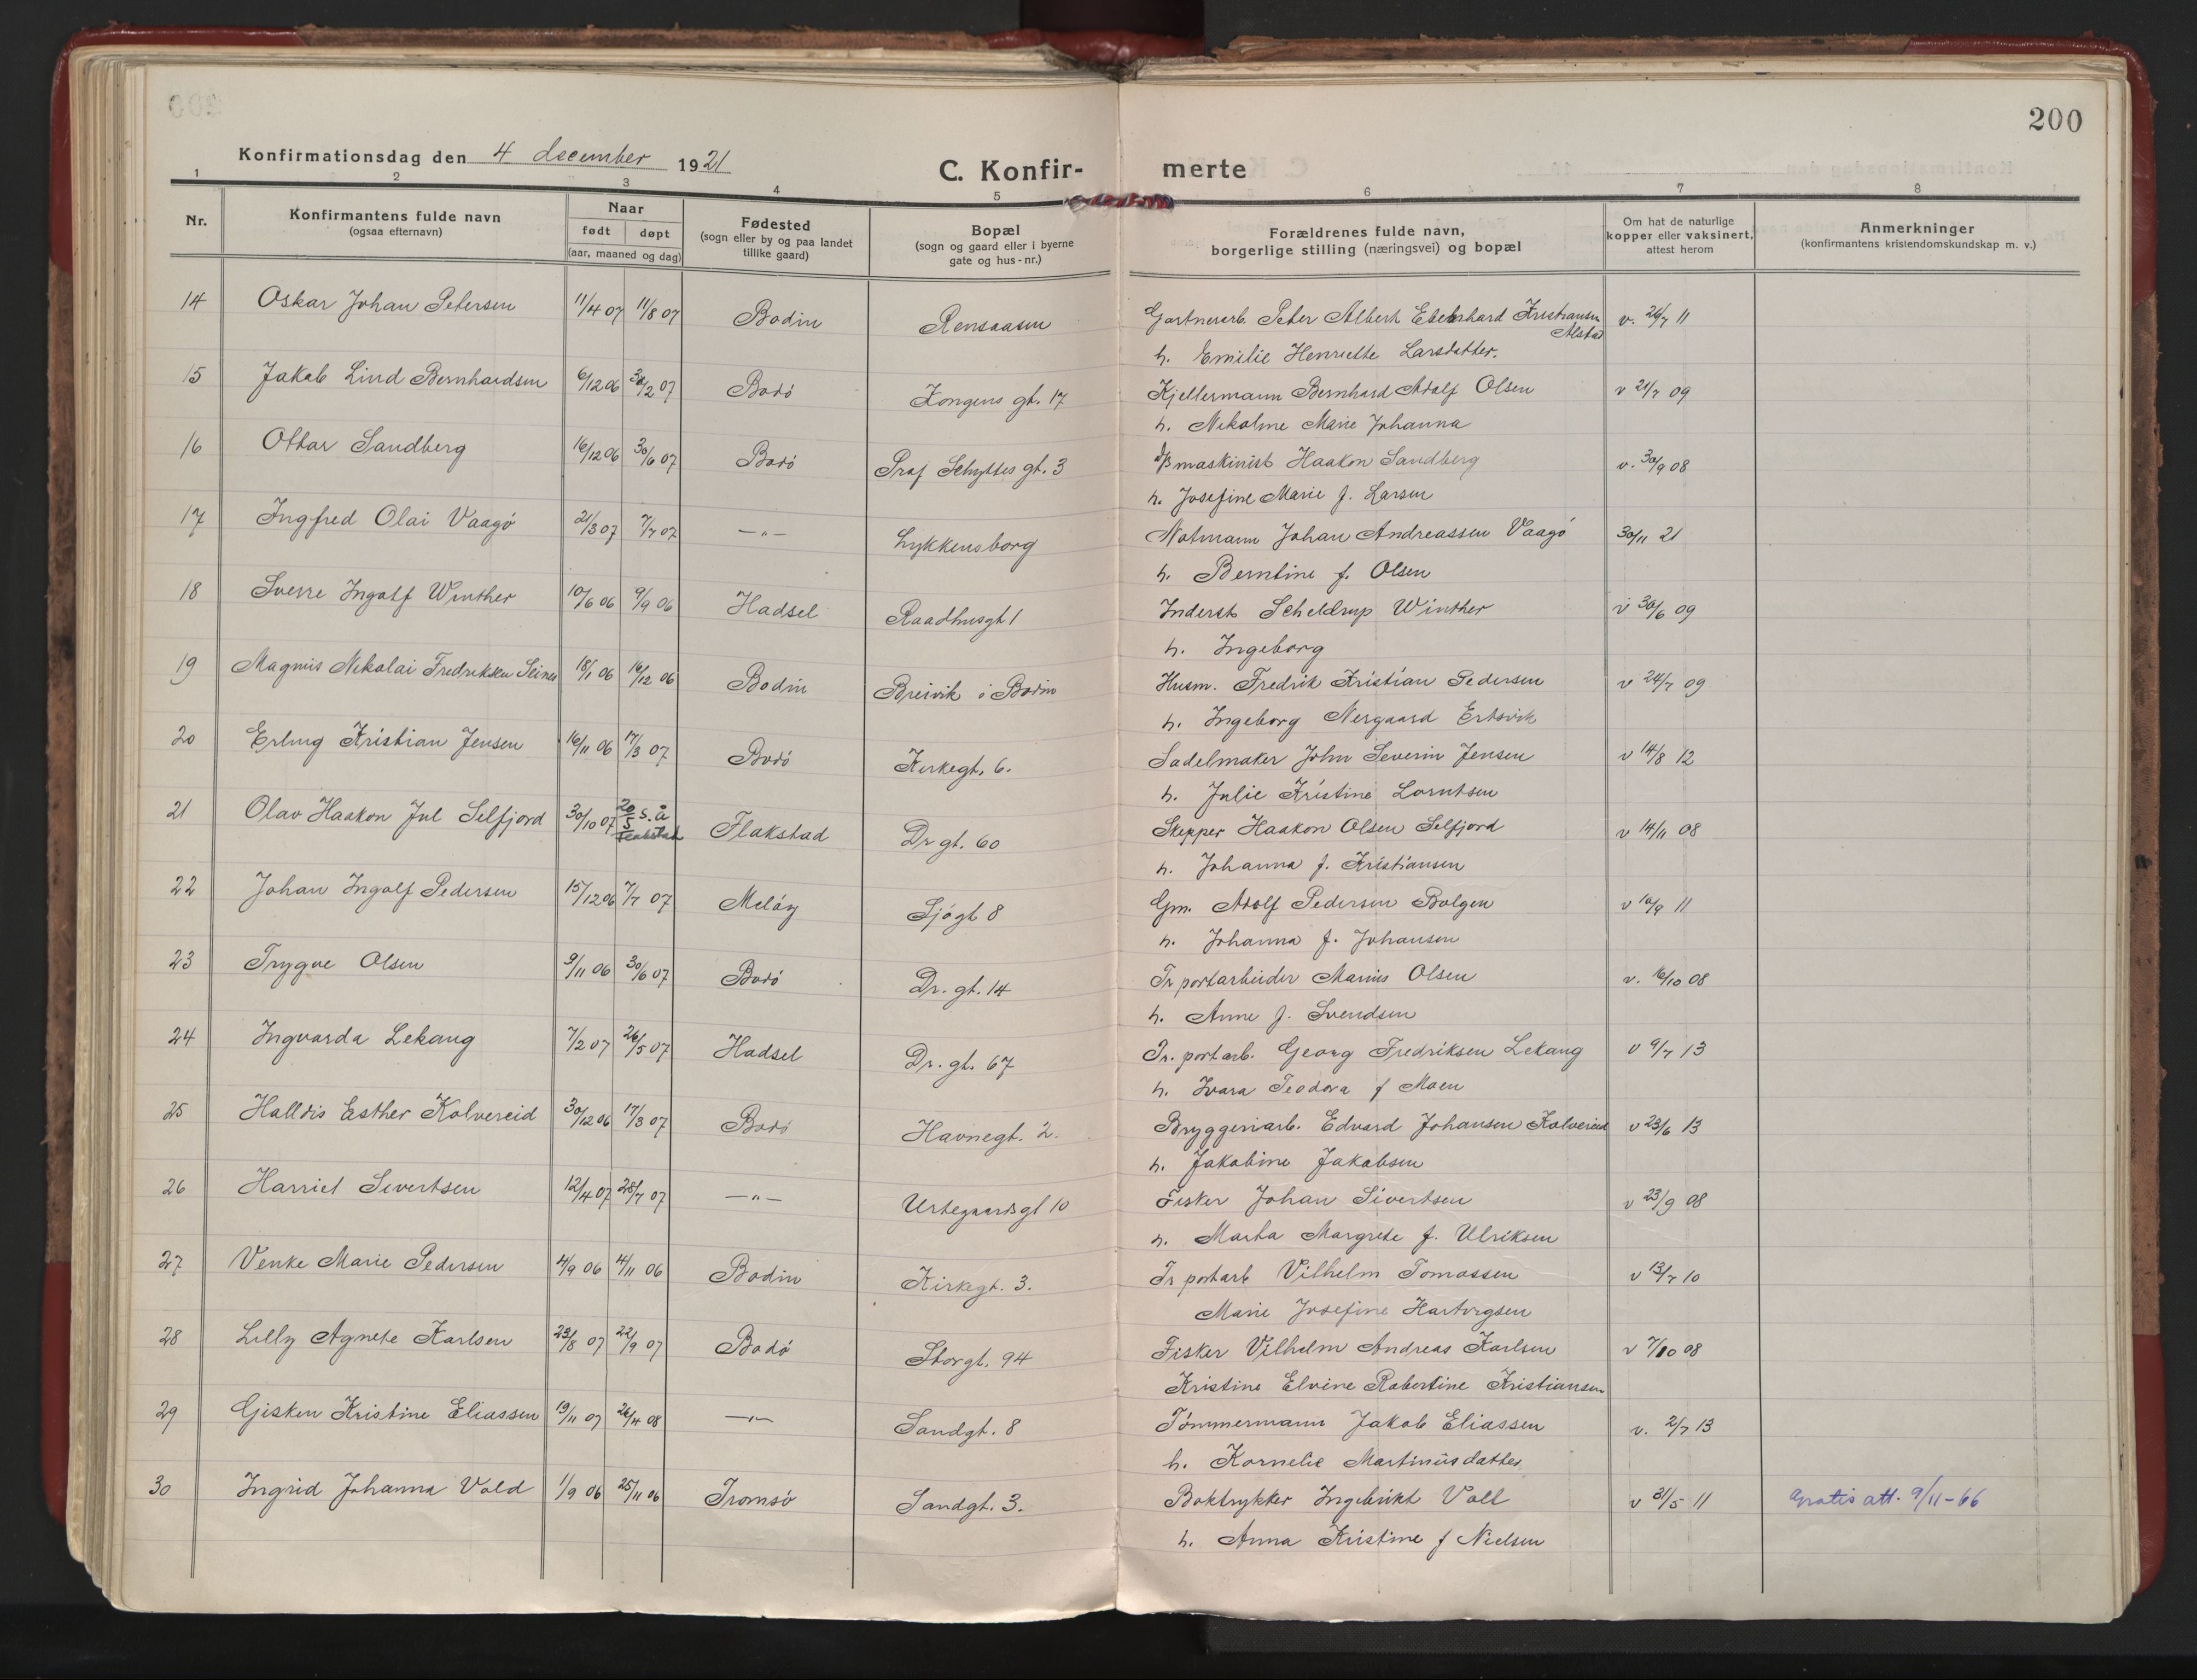 200
Konfirmationsdag den 4 december 1921
C. Konfir- merte
1 2 3 4 5 6 7 8
Nr.
Konfirmantens fulde navn
(ogsaa efternavn)
Naar
født døpt
(aar, maaned og dag)
Fødested
(sogn eller by og paa landet
tillike gaard)
Bopæl
(sogn og gaard eller i byerne
gate og hus-nr.)
Forældrenes fulde navn,
borgerlige stilling (næringsvei) og bopæl
Om hat de naturlige
kopper eller vaksinert,
attest herom
Anmerkninger
(konfirmantens kristendomskundskap m. v.)
14 Oskar Johan Petersen 11/4 07 11/8 07 Bodin Rensaasen Gartnerarb. Peter Albert Eberhard Kristiansen v. 26/7 11
Alstad
h. Emilie Henriette Larsdatter.
15 Jakob Lind Bernhardsen 6/12 06 /2 07 Bodø Kongens gt. 17 Kjellermann Bernhard Adolf Olsen v 21/7 09
h. Nikoline Marie Johanna
16 Ottar Sandberg 16/12 06 30/6 07 Bodø Prof Schyttes gt. 3 D/S maskinist Haakon Sandberg v. 30/9 08
h. Josefine Marie f. Larsen
17 Ingfred Olai Vaagø 21/3 07 7/7 07 —„— Lykkensborg Notmann Johan Andreassen Vaagø 30/11 21
h. Berntine f. Olsen
18 Sverre Ingolf Winther 10/6 06 9/9 06 Hadsel Raadhusgt 1 Inderst Scheldrup Winther v 30/6 09
h. Ingeborg
19 Magnus Nikolai Fredriksen Seines 18/1 06 16/12 06 Bodin Breivik i Bodin Husm. Fredrik Kristian Pedersen v 24/7 09
h. Ingeborg Nergaard Ertsvik
20 Erling Kristian Jensen 16/11 06 17/3 07 Bodø Kirkegt. 6. Sadelmaker John Severin Jensen v 14/8 12
h. Julie Kristine Lorntsen
21 Olav Haakon Jul Selfjord 30/10 07 20/5 s.å Flakstad Flakstad Dr gt. 60 Skipper Haakon Olsen Selfjord v 14/11 08
h. Johanna f. Kristiansen
22 Johan Ingolf Pedersen 15/12 06 7/7 07 Meløy Sjøgt 8 Gm. Adolf Pedersen Bolgen v 10/9 11
h. Johanna f. Johansen
23 Trygve Olsen 9/11 06 30/6 07 Bodø Dr. gt. 14 Tr portarbeider Marius Olsen v. 16/10 08
h. Anne f. Svendsen
24 Ingvarda Lekang 7/2 07 26/5 07 Hadsel Dr. gt. 67 Tr. portarb. Georg Fredriksen Lekang v 9/7 13
h. Ivara Teodora f Moen
25 Halldis Esther Kolvereid 30/12 06 17/3 07 Bodø Havnegt. 2. Bryggeriarb. Edvard Johansen Kolvereid v 23/6 13
h. Jakobine Jakobsen
26 Harriet Sivertsen 12/4 07 28/7 07 —„— Urtegaardsgt 10 Fisker Johan Sivertsen v 23/9 08
h. Marta Margrete f. Ulriksen
27 Venke Marie Pedersen 4/9 06 4/11 06 Bodin Kirkegt. 3. Tr portarb Vilhelm Tomassen v 13/7 10
Marie Josefine Hartvigsen
28 Lilly Agnete Karlsen 23/8 07 22/9 07 Bodø Storgt. 94 Fisker Vilhelm Andreas Karlsen v 7/10 08
Kristine Elvine Robertine Kristiansen
29 Gisken Kristine Eliassen 19/11 07 26/4 08 —„— Sandgt. 8 Tømmermann Jakob Eliassen v. 2/7 13
h. Kornelie Martinusdatter
30 Ingrid Johanna Vold 1/9 06 25/11 06 Tromsø Sandgt. 3. Boktrykker Ingebrikt Voll v 31/5 11 Gratis att. 9/11-66
h. Anna Kristine f Nielsen